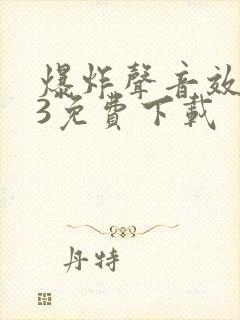 爆炸聲音效
3免費下載
丹特